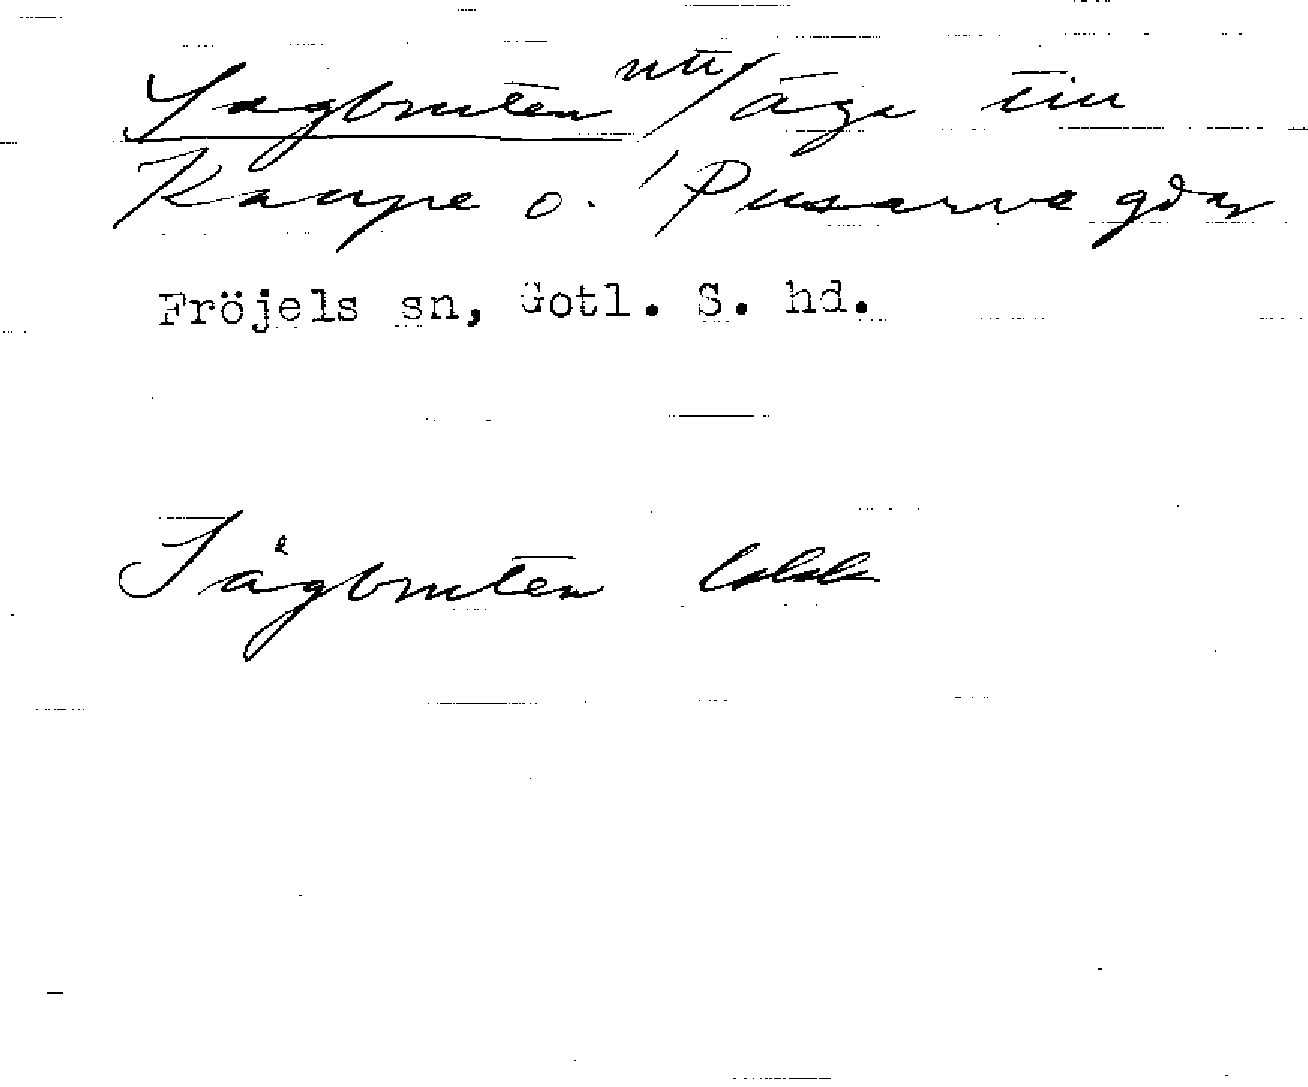 Sagbruten utj äga till
Kaupe o. Pusarve gdar
Fröjels sn, Gotl. S. hd.
Sågbruten